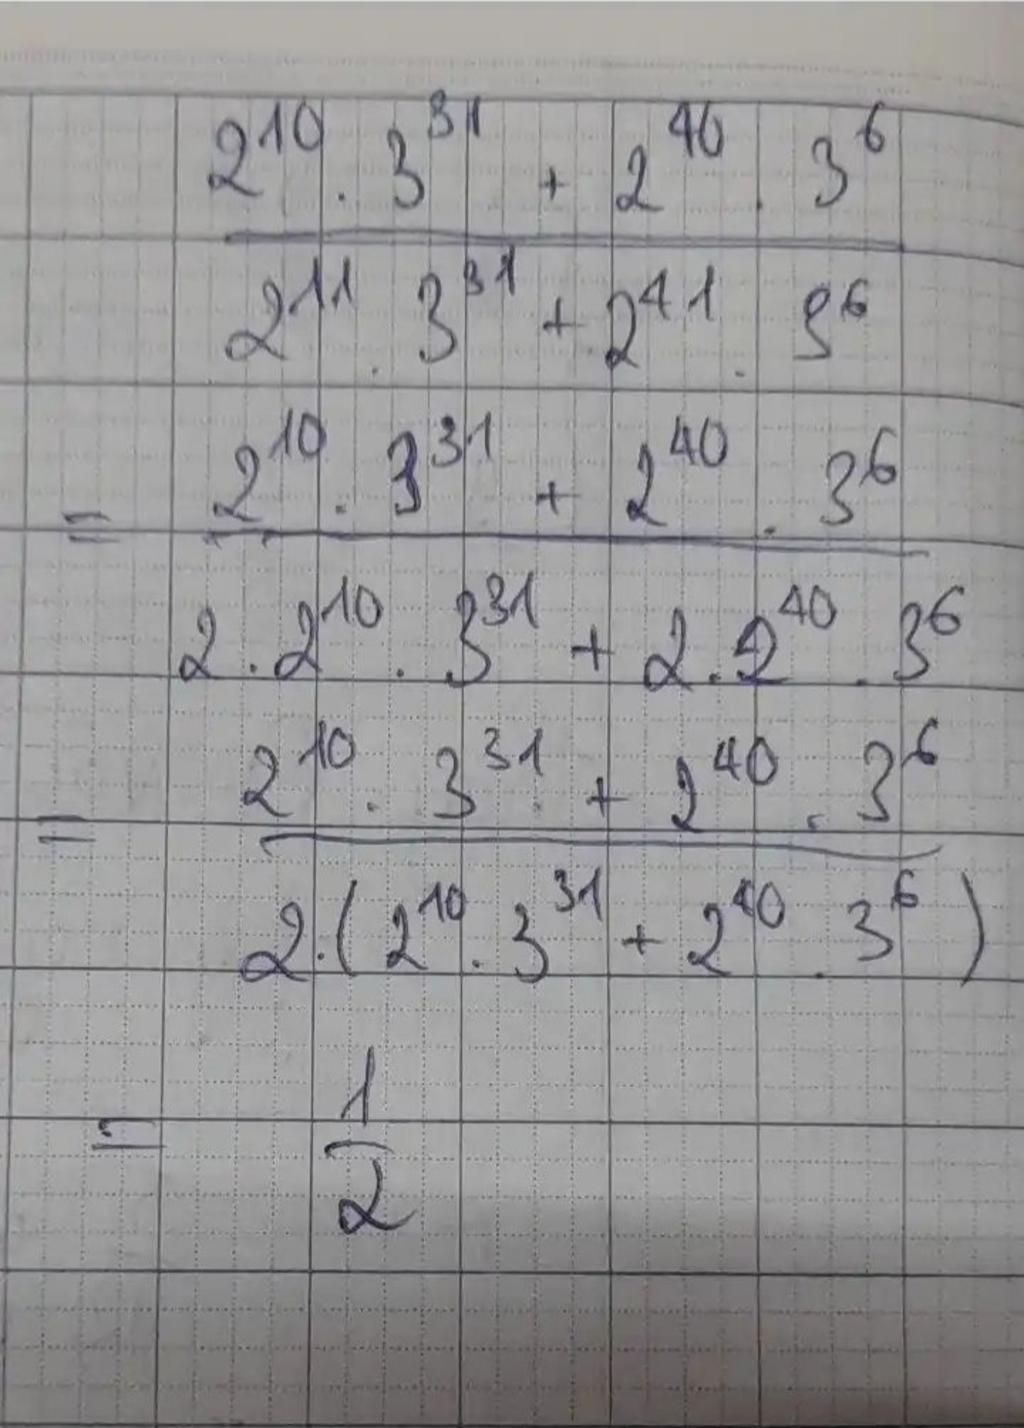 2^10 . 3^31 + 2^40 . 3^6
2^11 . 3^31 + 2^41 . 3^6
= 2^10 . 3^31 + 2^40 . 3^6
2 . 2^10 . 3^31 + 2 . 2^40 . 3^6
= 2^10 . 3^31 + 2^40 . 3^6
2 . ( 2^10 . 3^31 + 2^40 . 3^6 )
= 1
2